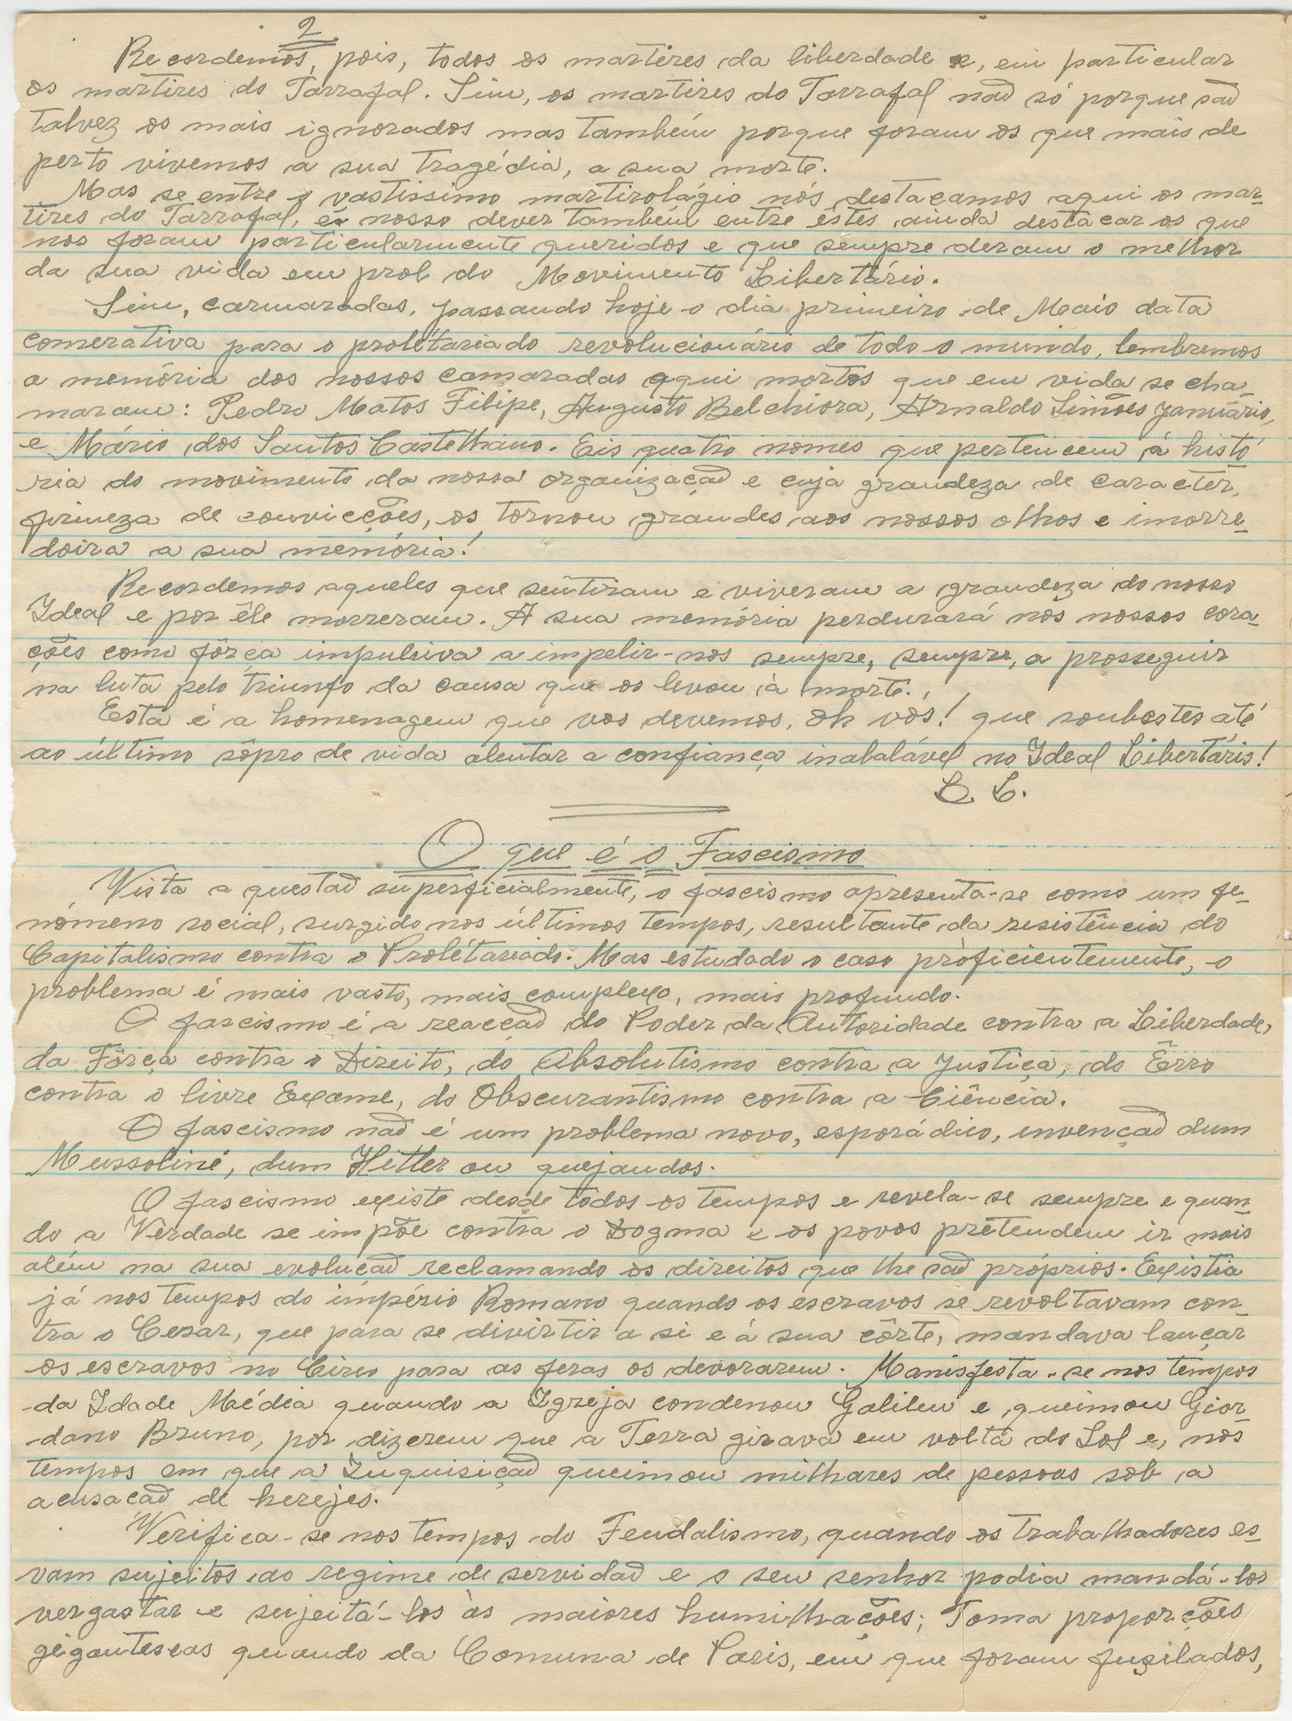 2
Recordemos, pois, todos os martires da liberdade e, em particular
os martires do Tarrafal. Sim, os martires do Tarrafal não só porque são
talvez os mais ignorados mas também porque foram os que mais de
perto vivemos a sua tragédia, a sua morte.
Mas se entre o vastissimo martirológio nós destacamos aqui os mar-
tires do Tarrafal, é nosso dever também entre êstes ainda destacar os que
nos foram particularmente queridos e que sempre deram o melhor
da sua vida em prol do Movimento Libertário.
Sim, carmaradas, passando hoje o dia primeiro de Maio data
comerativa para o prolétariado revolucionário de todo o mundo, lembremos
a memória dos nossos camaradas aqui mortos que em vida se cha-
maram: Pedro Matos Filipe, Augusto Belchiora, Arnaldo Simões Januário,
e Mário dos Santos Castelhano. Eis quatro nomes que pertencem á histó-
ria do movimento da nossa organização e cuja grandeza de caracter,
firmeza de convicções, os tornou grandes aos nossos olhos e imorre-
doira a sua memória!
Recordemos aqueles que sentiram e viveram a grandeza do nosso
Ideal e por êle morreram. A sua memória perdurará nos nossos cora-
ções como fôrça impulsiva a impelir-nos sempre, sempre, a prosseguir
na luta pelo triunfo da causa que os levou á morte.
Esta é a homenagem que vos devemos, oh vós! que soubestes até
ao último sôpro de vida alentar a confiança inabalável no Ideal Libertáris!
L. L.
O que é o Fascismo
Vista a questão superficialmente, o fascismo apresenta-se como um fe-
nómeno social, surgido nos últimos tempos, resultante da resistência do
Capitalismo contra o Prolétariado. Mas estudado o caso pròficientemente, o
problema é mais vasto, mais complexo, mais profundo.
O fascismo é a reacção do Poder da Autoridade contra a Liberdade,
da Fôrça contra o Direito, do Absolutismo contra a Justiça, do Êrro
contra o livre Exame, do Obscurantismo contra a Ciência.
O fascismo não é um problema novo, esporádico, invenção dum
Mussoliné, dum Hitler ou quejandos.
O fascismo existe desde todos os tempos e revela-se sempre e quan-
do a Verdade se impõe contra o Dogma e os povos pretendem ir mais
além na sua evolução reclamando os direitos que lhe são próprios. Existia
já nos tempos do império Romano quando os escravos se revoltavam con-
tra o Cesar, que para se divirtir a si e á sua côrte, mandava lançar
os escravos no Circo para as feras os devorarem. Manisfesta-se nos tempos
da Idade Média quando a Igreja condenou Galileu e queimou Gior-
dano Bruno, por dizerem que a Terra girava em volta do Sol e, nos
tempos em que a Inquisição queimou milhares de pessoas sob a
acusação de herejes.
Verifica-se nos tempos do Feudalismo, quando os trabalhadores es-
vam sujeitos ao regime de servidão e o seu senhor podia mandá-los
vergastar e sujeitá-los às maiores humilhações; Toma proporções
gigantescas quando da Comuna de Paris, em que foram fuzilados,